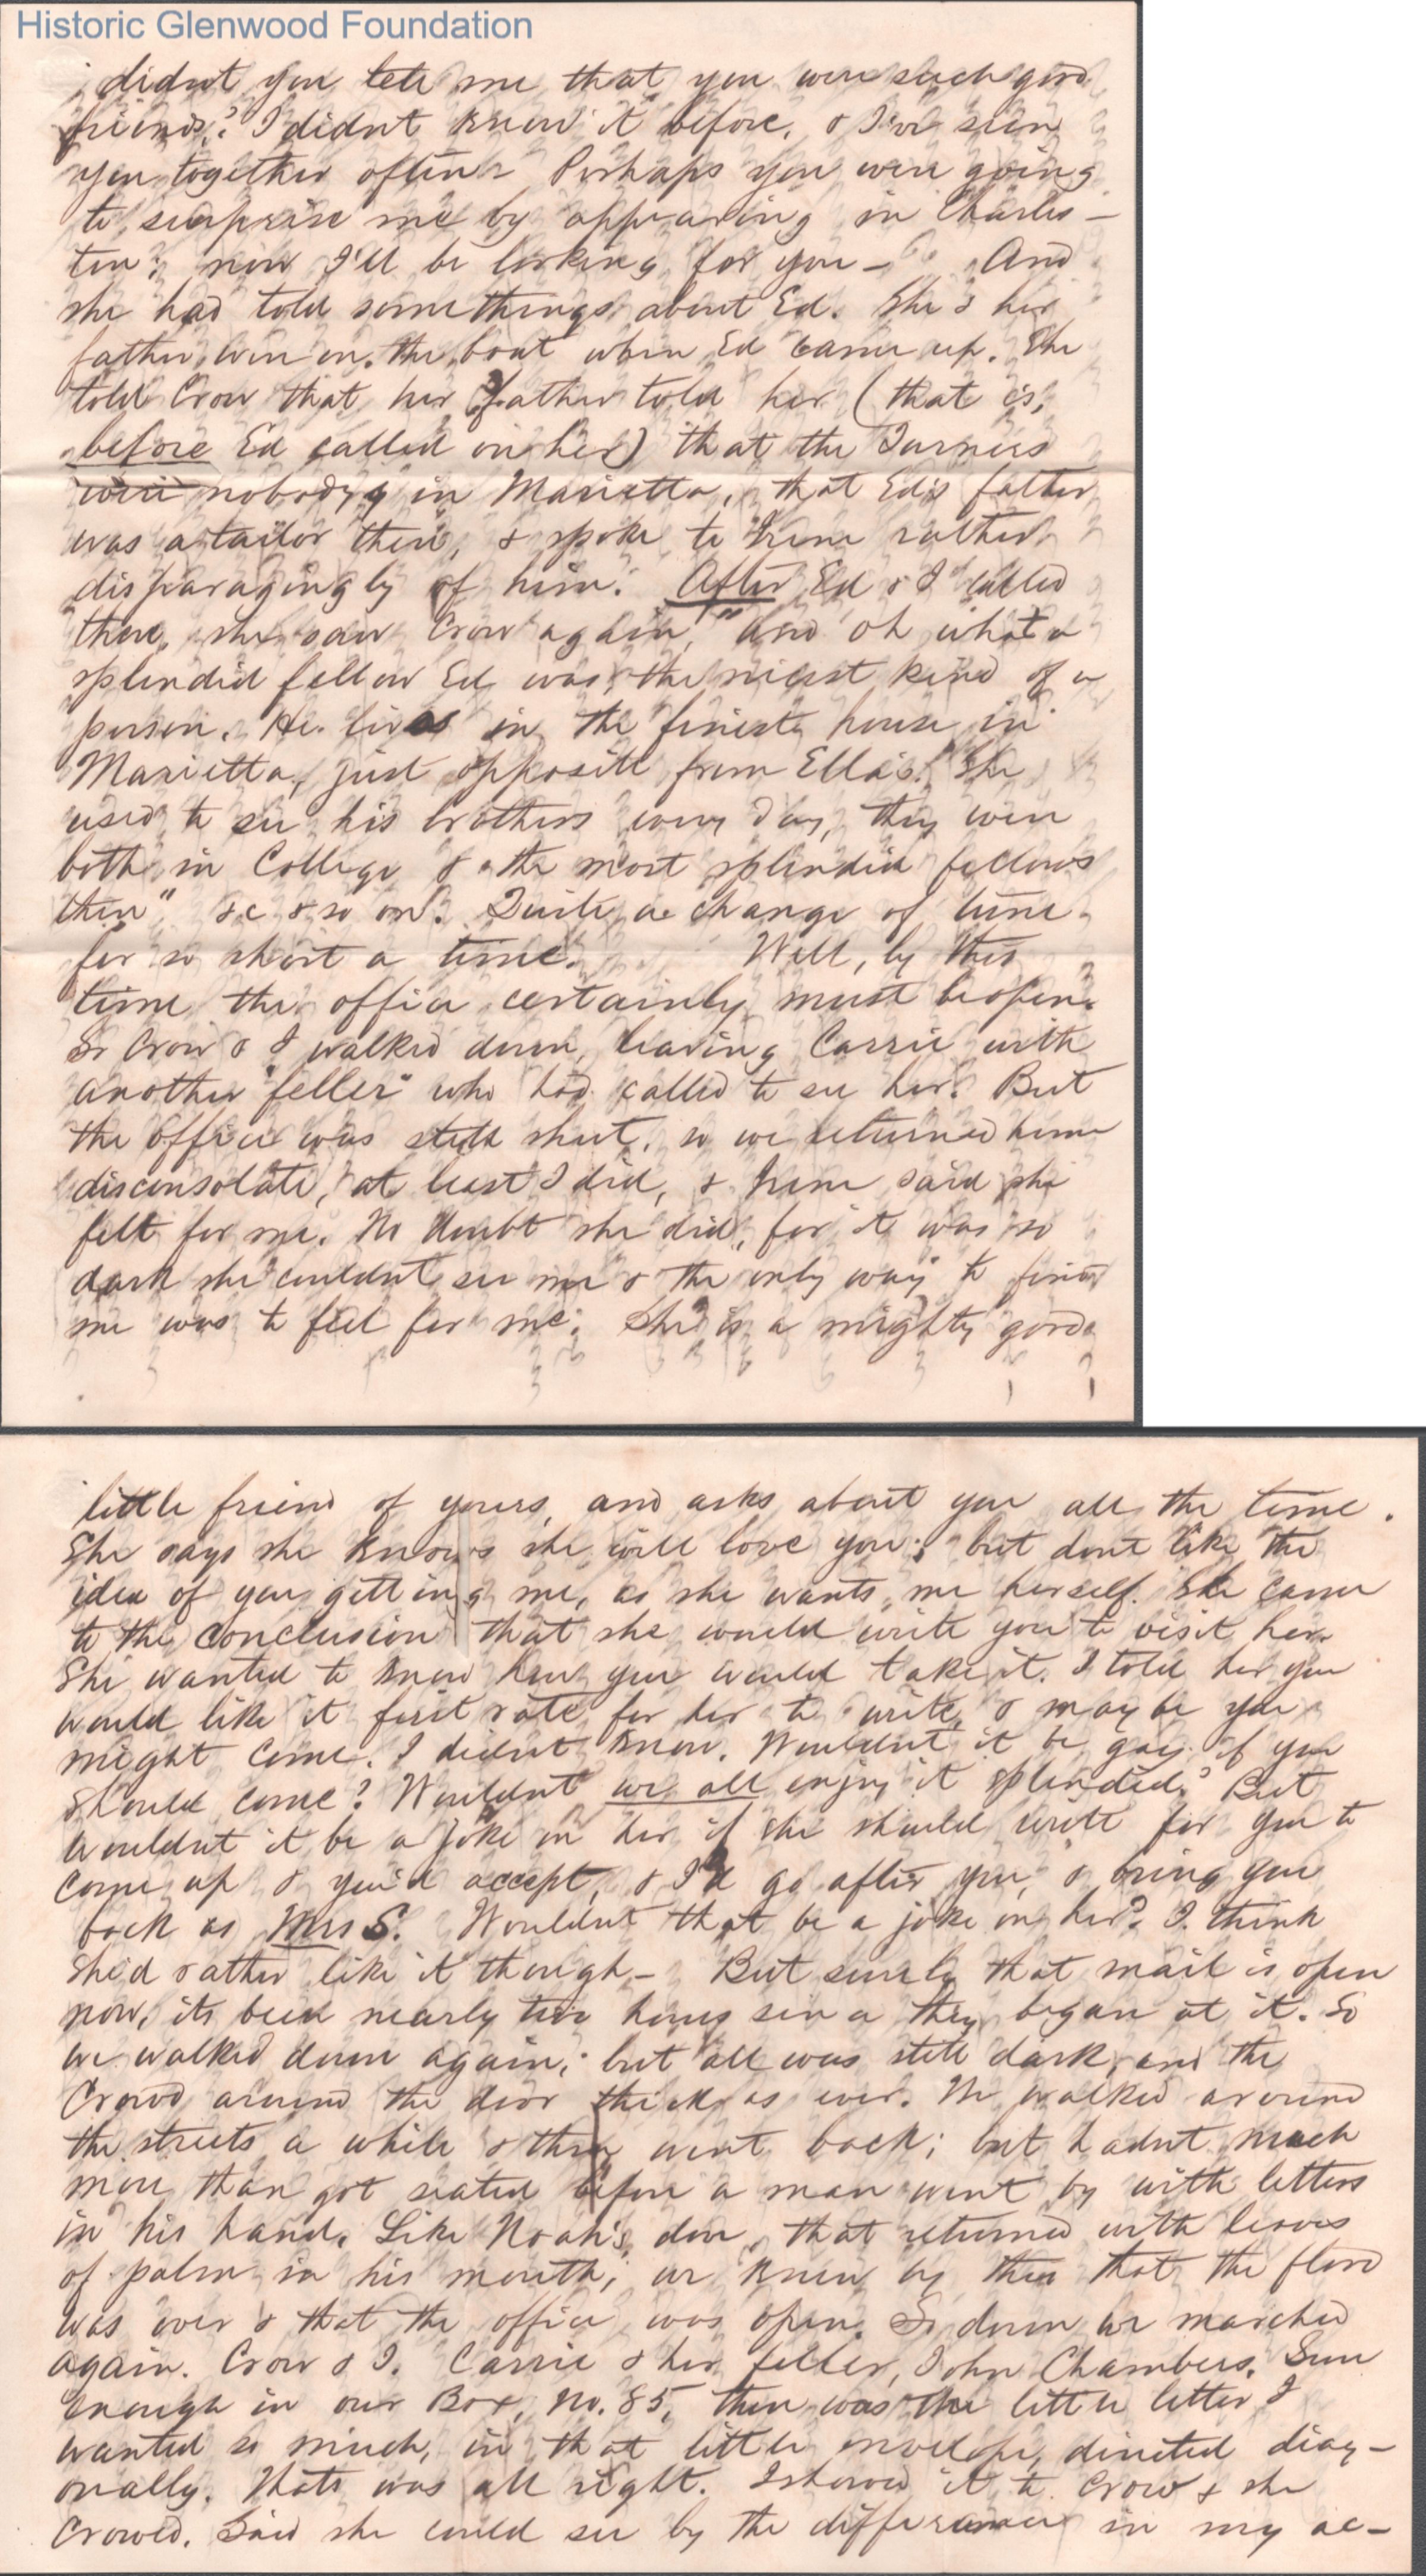 Historic Glenwood Foundation
didnt you tell me that you were such good
friends? I didnt know it before, & I've seen
you together often - Perhaps you were going
to surprise me by appearing in Charles-
ton; now I'll be looking for you - And
she had told some things about Ed. She & her
father were on the boat when Ed came up. She
told Crow that her father told her (that is,
before Ed called on her) that the Turners
were nobodys in Marietta, that Ed's father
was a tailor there, & spoke to her rather
disparagingly of him. After Ed & I called
there, she saw Crow again, "and oh what a
splendid fellow Ed was, the nicest kind of a
person. He lives in the finest house in
Marietta, just opposite from Ella's. She
used to see his brothers every day, they were
both in College & the most splendid fellows
then" &c & so on. Quite a change of tune
for so short a time. Well, by this
time the office certainly must be open.
So Crow & I walked down, leaving Carrie with
another "feller" who had called to see her. But
the office was still shut, so we returned home
disconsolate, at least I did, & she said she
felt for me. No doubt she did, for it was so
dark she couldnt see me & the only way to find
me was to feel for me. She is a mighty good
little friend of yours, and asks about you all the time.
She says she knows she will love you; but dont like the
idea of you getting me, as she wants me herself. She came
to the conclusion that she would write you to visit her.
She wanted to know how you would take it. I told her you
would like it first rate for her to write, & may be you
might come. I didnt know. Wouldnt it be gay if you
should come? Wouldnt we all enjoy it splendid? But
wouldnt it be a joke on her if she should write for you to
come up & you'd accept, & I'd go after you, & bring you
back as Mrs S. Wouldnt that be a joke on her? I think
she'd rather like it though - But surely that mail is open
now, its been nearly two hours since they began at it. So
we walked down again; but all was still dark, and the
crowd around the door thick as ever. We walked around
the streets a while & then went back; but hadnt much
more than got seated before a man went by with letters
in his hand. Like Noah's dove, that returned with leaves
of palm in his mouth; we knew by this that the flood
was over & that the office was open. So down we marched
again. Crow & I. Carrie & her feller, John Chambers. Sure
enough in our Box, No. 85, there was the little letter I
wanted so much, in that little envelope, directed diag-
onally. Thats was all right. I showed it to Crow & she
crowed. Said she could see by the difference in my ac-